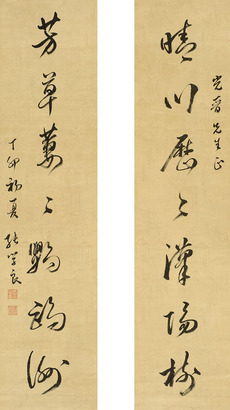 光晉先生正
晴川歷々漢陽樹
芳草萋々鸚鵡洲
丁卯初夏 張學良